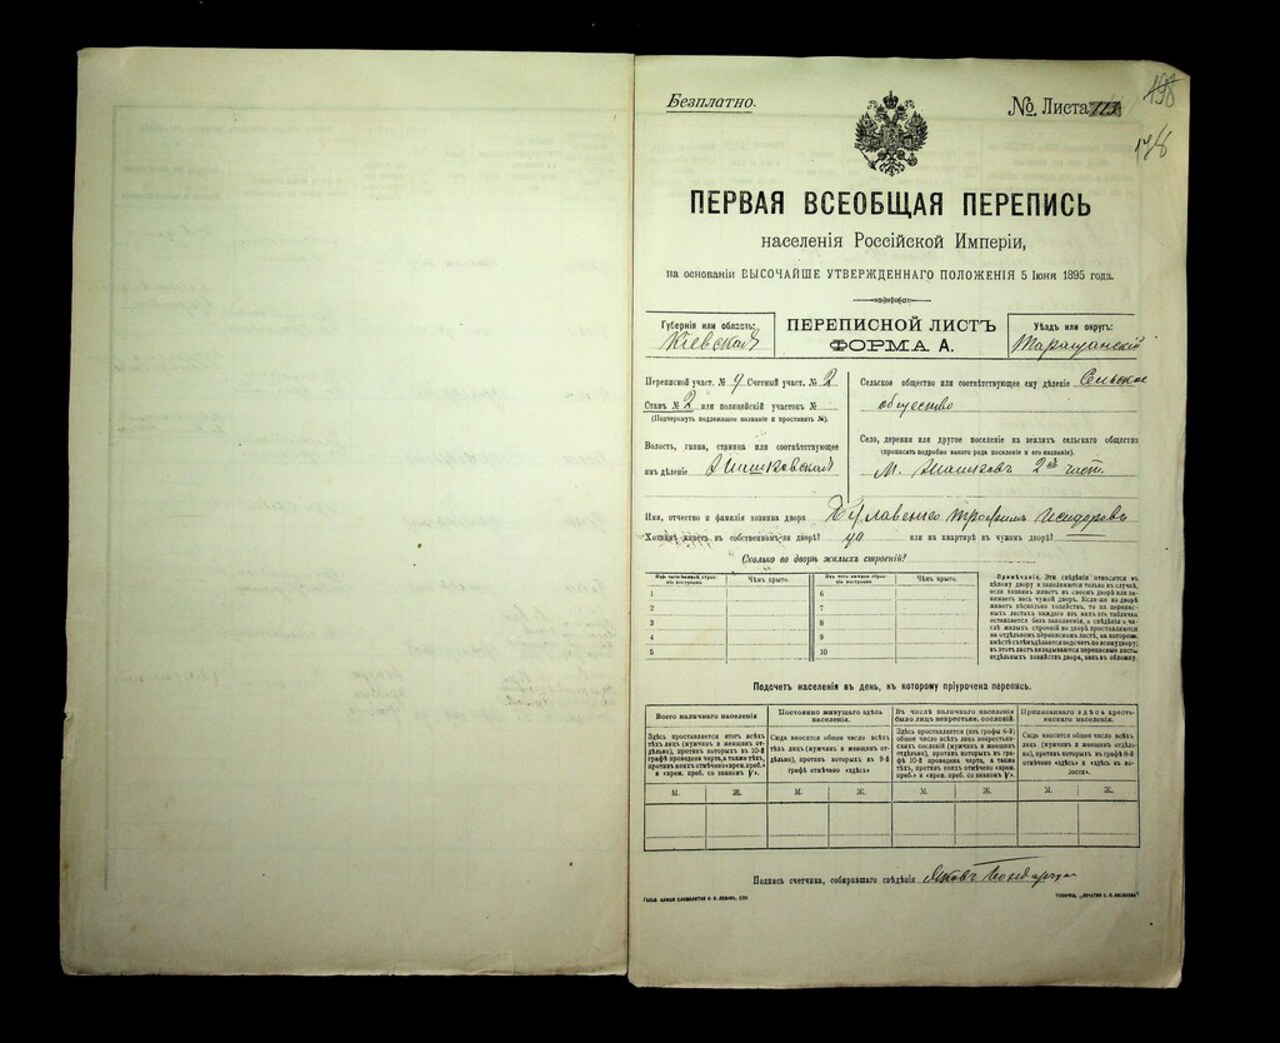 Безплатно.
№. Листа
198
178
ПЕРВАЯ ВСЕОБЩАЯ ПЕРЕПИСЬ
населенія Россійской Имперіи,
на основаніи ВЫСОЧАЙШЕ УТВЕРЖДЕННАГО ПОЛОЖЕНІЯ 5 Іюня 1895 года.
Губернія или область:
Кіевская
ПЕРЕПИСНОЙ ЛИСТЪ
ФОРМА А.
Уѣздъ или округъ:
Таращанскій
Переписной участ. № 4 Счетный участ. № 2
Станъ № 2 или полицейскій участокъ №
(Подчеркнуть подлежащее названіе и проставить №).
Волость, гмина, станица или соотвѣтствующее
имъ дѣленіе
Сельское общество или соотвѣтствующее ему дѣленіе Сельское
общество
Село, деревня или другое поселеніе на земляхъ сельскаго общества
(прописать подробно какого рода поселеніе и его названіе).
М. 2ая част.
Имя, отчество и фамилія хозяина двора Трофимъ Исидоровъ
Хозяинъ живетъ въ собственномъ-ли дворѣ? да или на квартирѣ въ чужомъ дворѣ?
Сколько во дворѣ жилыхъ строеній?
Изъ чего каждый, строеніе построено
Чѣмъ крыто.
Изъ чего каждый строеніе построено
Чѣмъ крыто.
1
6
2
7
3
8
4
9
5
10
Примѣчаніе. Эти свѣдѣнія относятся къ
цѣлому двору и заполняются только въ случаѣ,
если хозяинъ живетъ въ своемъ дворѣ или за-
нимаетъ весь чужой дворъ. Если-же во дворѣ
живетъ нѣсколько хозяйствъ, то на перепис-
ныхъ листахъ каждаго изъ нихъ эта табличка
оставляется безъ заполненія, а свѣдѣнія о чи-
слѣ жилыхъ строеній во дворѣ проставляются
на отдѣльномъ переписномъ листѣ, на которомъ
вмѣстѣ съ тѣмъ дѣлается подсчетъ по всему двору;
въ этотъ листъ вкладываются переписные листы
отдѣльныхъ хозяйствъ двора, какъ въ обложку.
Подсчетъ населенія въ день, къ которому пріурочена перепись.
Всего наличнаго населенія
Постоянно живущаго здѣсь
населенія.
Въ числѣ наличнаго населенія
было лицъ некрестьян. сословій.
Приписаннаго здѣсь кресть-
янскаго населенія.
Здѣсь проставляется итогъ всѣхъ
тѣхъ лицъ (мужчинъ и женщинъ от-
дѣльно), противъ которыхъ въ 10-й
графѣ проведена черта, а также тѣхъ,
противъ коихъ отмѣчено «врем. преб.»
и «врем. преб. со знакомъ V».
Сюда вносится общее число всѣхъ
тѣхъ лицъ (мужчинъ и женщинъ от-
дѣльно), противъ которыхъ въ 9-й
графѣ отмѣчено «здѣсь»
Здѣсь проставляется (изъ графы 6-й)
общее число всѣхъ лицъ некрестьян-
скихъ сословій (мужчинъ и женщинъ
отдѣльно), противъ которыхъ въ гра-
фѣ 10-й проведена черта, а также
тѣхъ, противъ коихъ отмѣчено «врем.
преб.» и «врем. преб. со знакомъ V».
Сюда вносится общее число всѣхъ
тѣхъ лицъ (мужчинъ и женщинъ отдѣль-
но), противъ которыхъ въ графѣ 8-й
отмѣчено «здѣсь» и «здѣсь въ во-
лости».
М. Ж. М. Ж. М. Ж. М. Ж.
Подпись счетчика, собиравшаго свѣдѣнія Яковъ Бондарчук